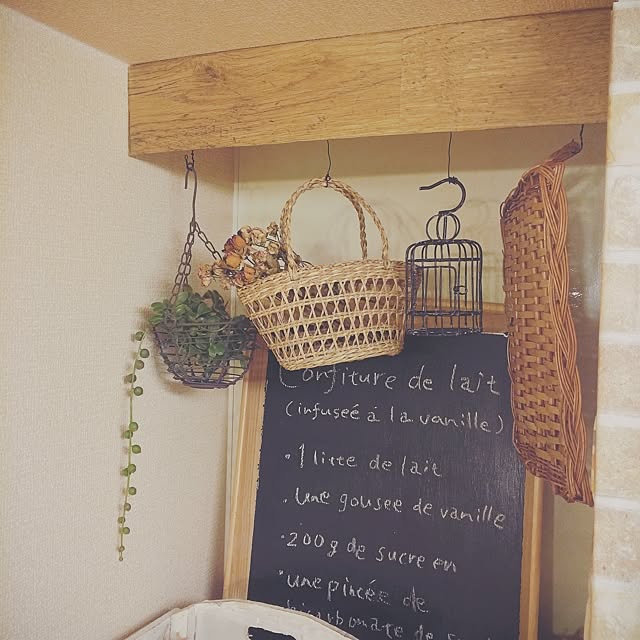 Confiture de lait
(infuseé á la vanille)
· 1 litte de lait
· une gousee de vanille
· 200g de sucre en
· une pincée de
bicarbonate de